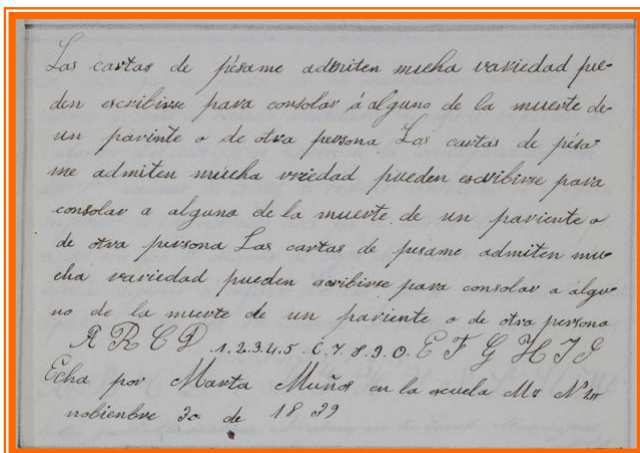 Las cartas de pésame admiten mucha variedad pue-
den escribirse para consolar á alguno de la muerte de
un parinte o de otra persona Las cartas de pésa-
me admiten mucha vriedad pueden escribirse para
consolar a alguna de la muerte de un pariente o
de otra persona Las cartas de pesame admiten mu-
cha variedad pueden escribirse para consolar a algu-
no de la muerte de un pariente o de otra persona
A B C D .1.2.3.4.5.6.7.8.9.0. E F G H I J
Echa por Marta Muños en la escuela
nobienbre 30 de 1899